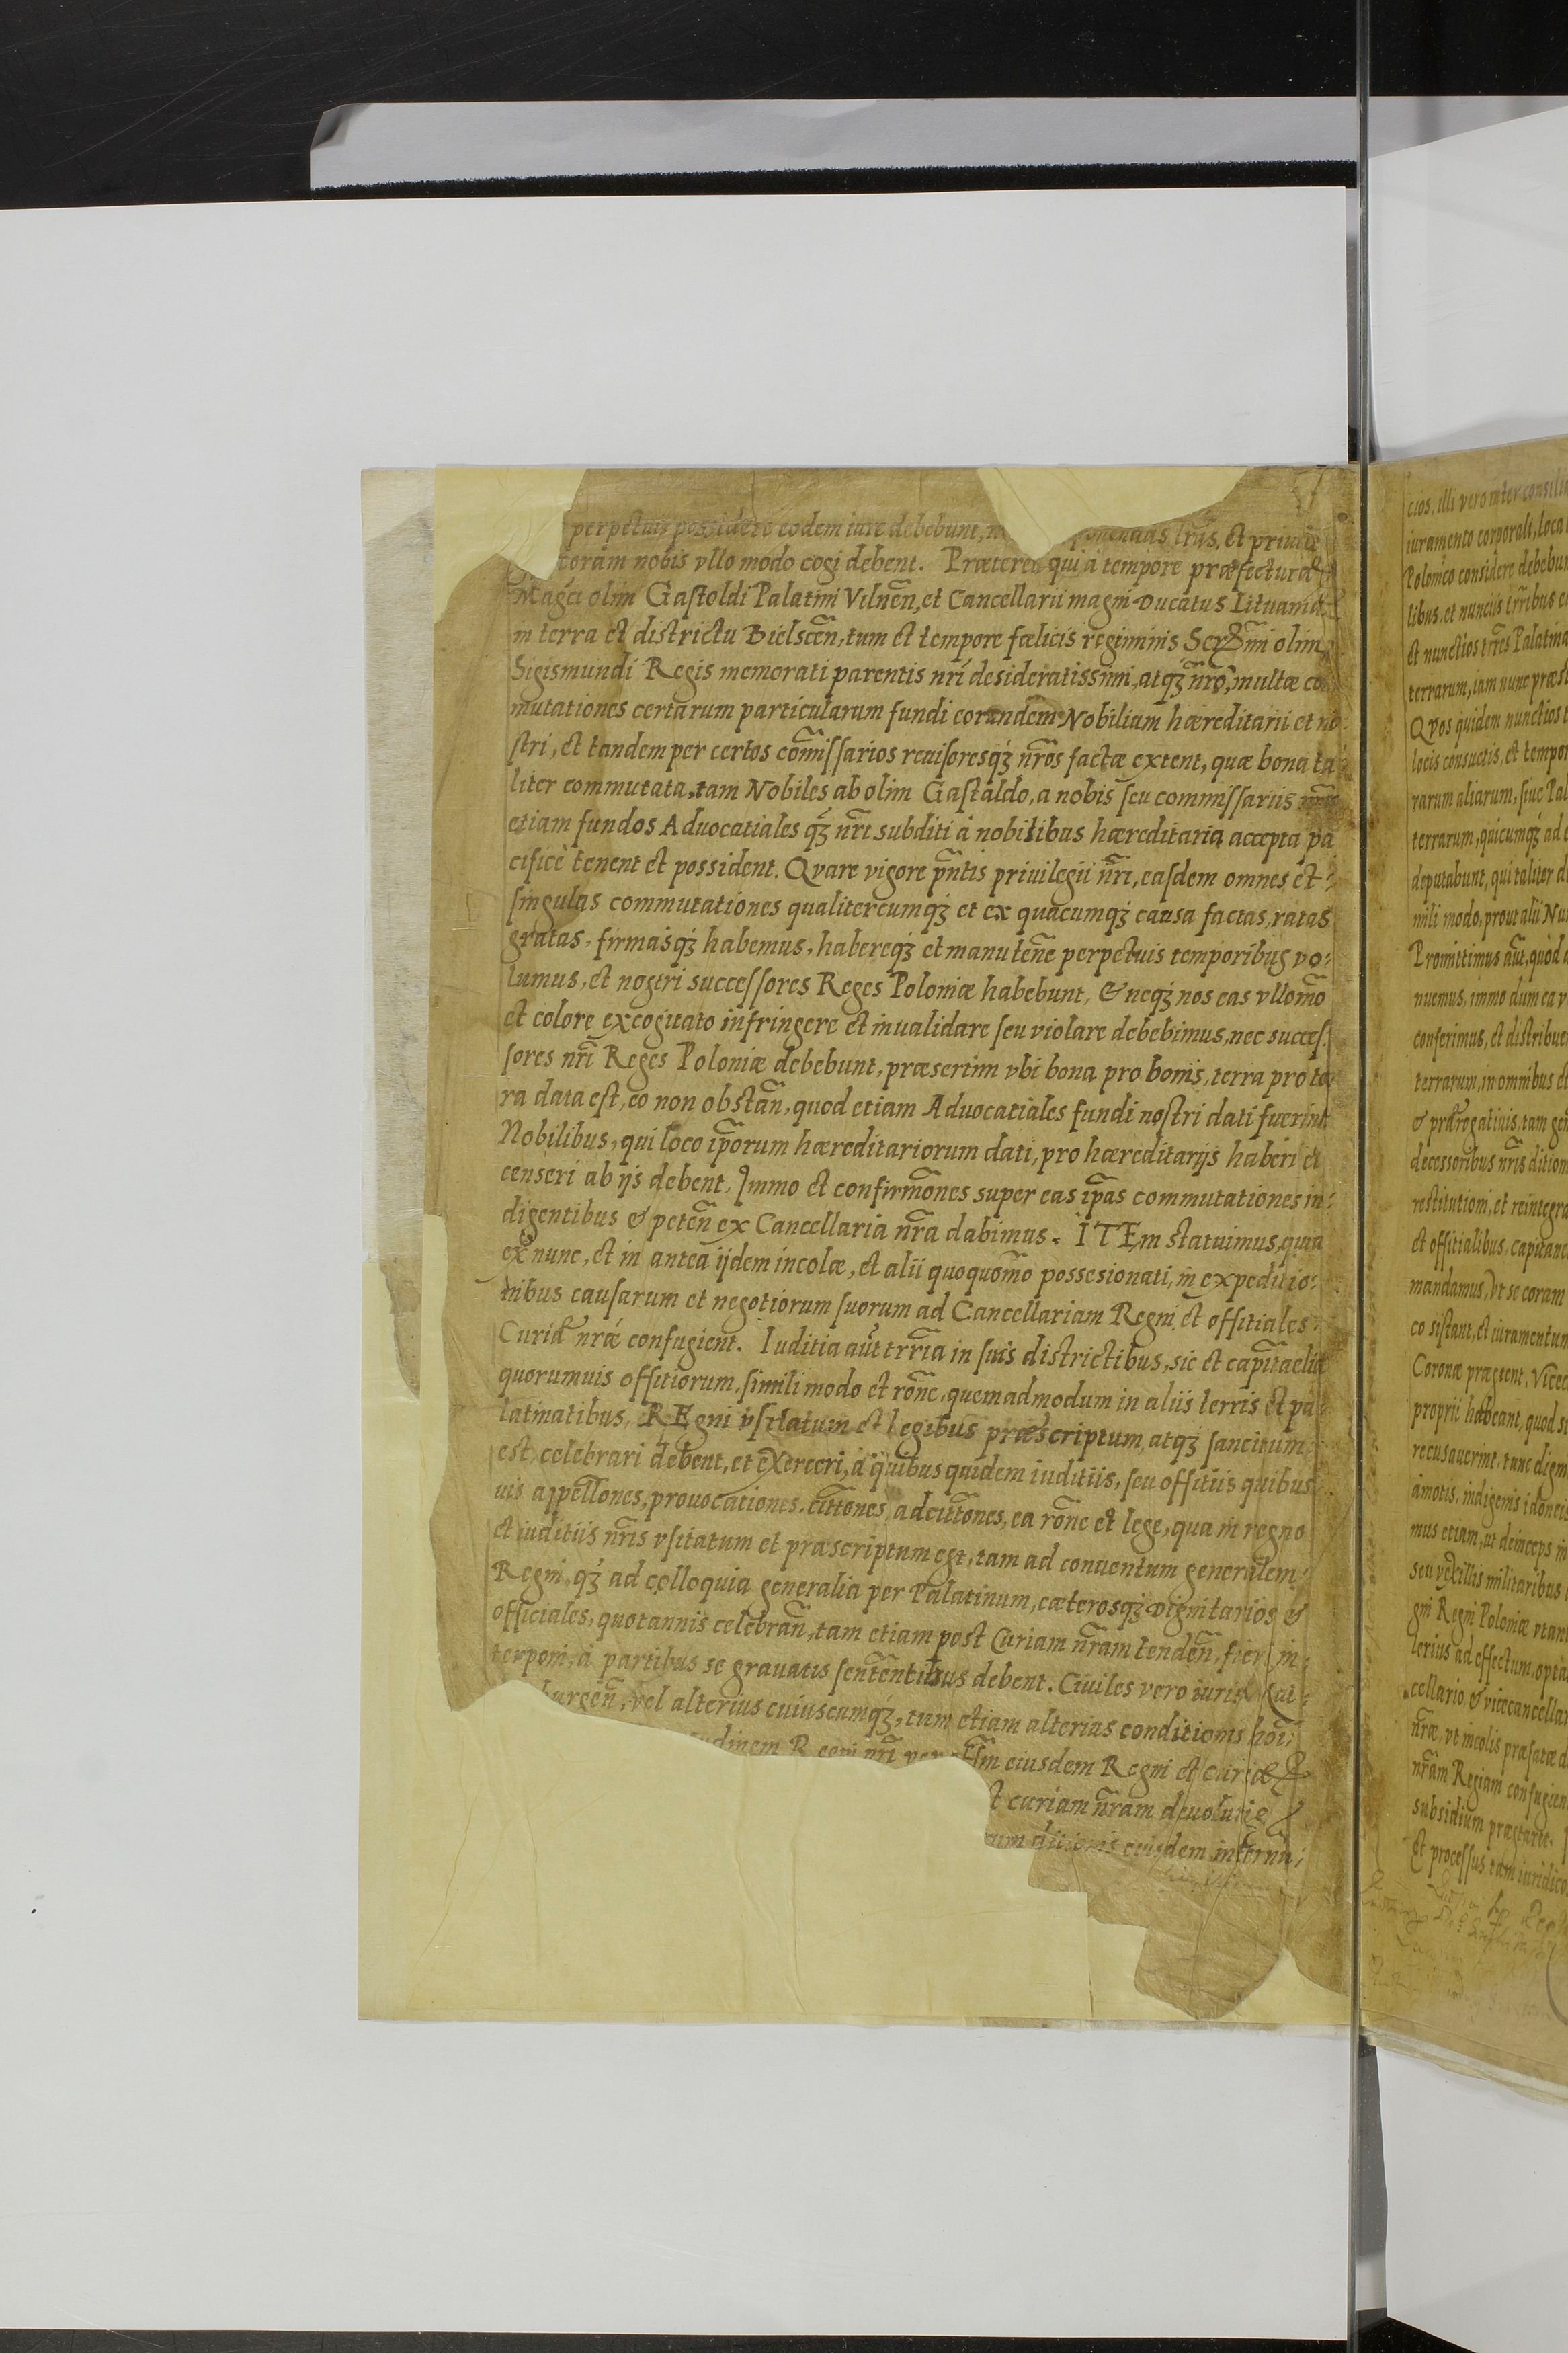 perpetuis possidere eodem iure debebunt, lr̃as, et priuile
coram nobis vllo modo cogi debent. Præterea qui à tempore præfecturæ
Mag̃ci olim Gastoldi Palatini Vilneñ, et Cancellarii magni Ducatus Lituaniæ
in terra et districtu Bielsceñ, tum et tempore fœlicis regiminis Ser̃mi olim
Sigismundi Regis memorati parentis nr̃i desideratissimi, atqꝫ nr̃o, multæ co
mutationes certarum particularum fundi eorundem Nobilium hæreditarii et no:
stri, et tandem per certos com̃issarios reuisoresqꝫ nr̃os factæ extent, quæ bona ta:
liter commutata, tam Nobiles ab olim Gastaldo, a nobis seu commissariis nr̃is
etiam fundos Aduocatiales qꝫ nr̃i subditi à nobilibus hæreditaria accepta pa
cificè tenent et possident. Qvare vigore pñtis priuilegii nr̃i, easdem omnes et
singulas commutationes qualitercumqꝫ et ex quacumqꝫ causa factas, ratas
gratas, firmasqꝫ habemus, habereqꝫ et manuteñe perpetuis temporibus vo:
lumus, et nostri successores Reges Poloniæ habebunt, & neqꝫ nos eas vllo mõ
et colore excogitato infringere et inualidare seu violare debebimus, nec succes:
sores nr̃i Reges Poloniæ debebunt, præsertim vbi bona pro bonis, terra pro ter
ra data est, eo non obstañ, quod etiam Aduocatiales fundi nostri dati fuerint
Nobilibus, qui loco ip̃orum hæreditariorum dati, pro hæreditarijs haberi et
censeri ab ijs debent. Immo et confirm̃ones super eas ip̃as commutationes in:
digentibus & peteñ ex Cancellaria nr̃a dabimus. ITEm statuimus, quia
ex nunc, et in antea ijdem incolæ, et alii quoquom̃o possesionati, in expeditio:
nibus causarum et negotiorum suorum ad Cancellariam Regni et offitiales
Curiæ nr̃æ confugient. Iuditia aũt trr̃ia in suis districtibus, sic et capitaelia
quorumuis offitiorum, simili modo et rõne, quemadmodum in aliis terris et pa
latinatibus, REgni vsitatum et legibus præscriptum, atqꝫ sancitum
est, celebrari debent, et exerceri, à quibus quidem iuditiis, seu offitiis quibus
uis appellõnes, prouocationes, cittõnes, adcittõnes, ea rõne et lege, qua in regno
et iuditiis nr̃is vsitatum et præscriptum est, tam ad conuentum generalem
Regni, qꝫ ad colloquia generalia per Palatinum, cæterosqꝫ dignitarios &
officiales, quotannis celebrañ, tam etiam post Curiam nr̃am tendeñ, fieri, in:
terponi, à partibus se grauatis sententibus debent. Ciuiles vero iuris
burgeñ, vel alterius cuiuscumqꝫ, tum etiam alterius conditionis hõi;
udinem Regni nr̃i eiusdem Regni et curiæ
et curiam nr̃am deuolutis
ditionis eiusdem
cios, illi vero inter consilia
iuramento corporali, loca
Polonico considere debebun
libus, et nunciis trr̃ibus
et nunctios trr̃es Palatina
terrarum, iam nunc præst
Qvos quidem nunctios t
locis consuetis, et tempor
rarum aliarum, siue Pal
terrarum, quicumqꝫ ad
deputabunt, qui taliter
mili modo, prout alii Nu
Promittimus aũt, quod
nuemus, immo dum ea v
conferimus, et distribue
terrarum, in omnibus et
& prærogatiuis, tam gen
decessoribus nr̃is dition
restitutioni, et reintegra
et offitialibus, capitane
mandamus, vt se coram
co sistant, et iuramentum
Coronæ præstent. Vicec
proprii habeant, quod si
recusauerint, tunc dign
amotis, indigenis idoneis
mus etiam, ut deinceps in
seu vexillis militaribus
gni Regni Poloniæ vtan
lerius ad effectum, opta
cellario & vicecancellar
nr̃æ, vt incolis præfatæ d
nr̃am Regiam confugien
subsidium præstare.
Et processus tam iuridico